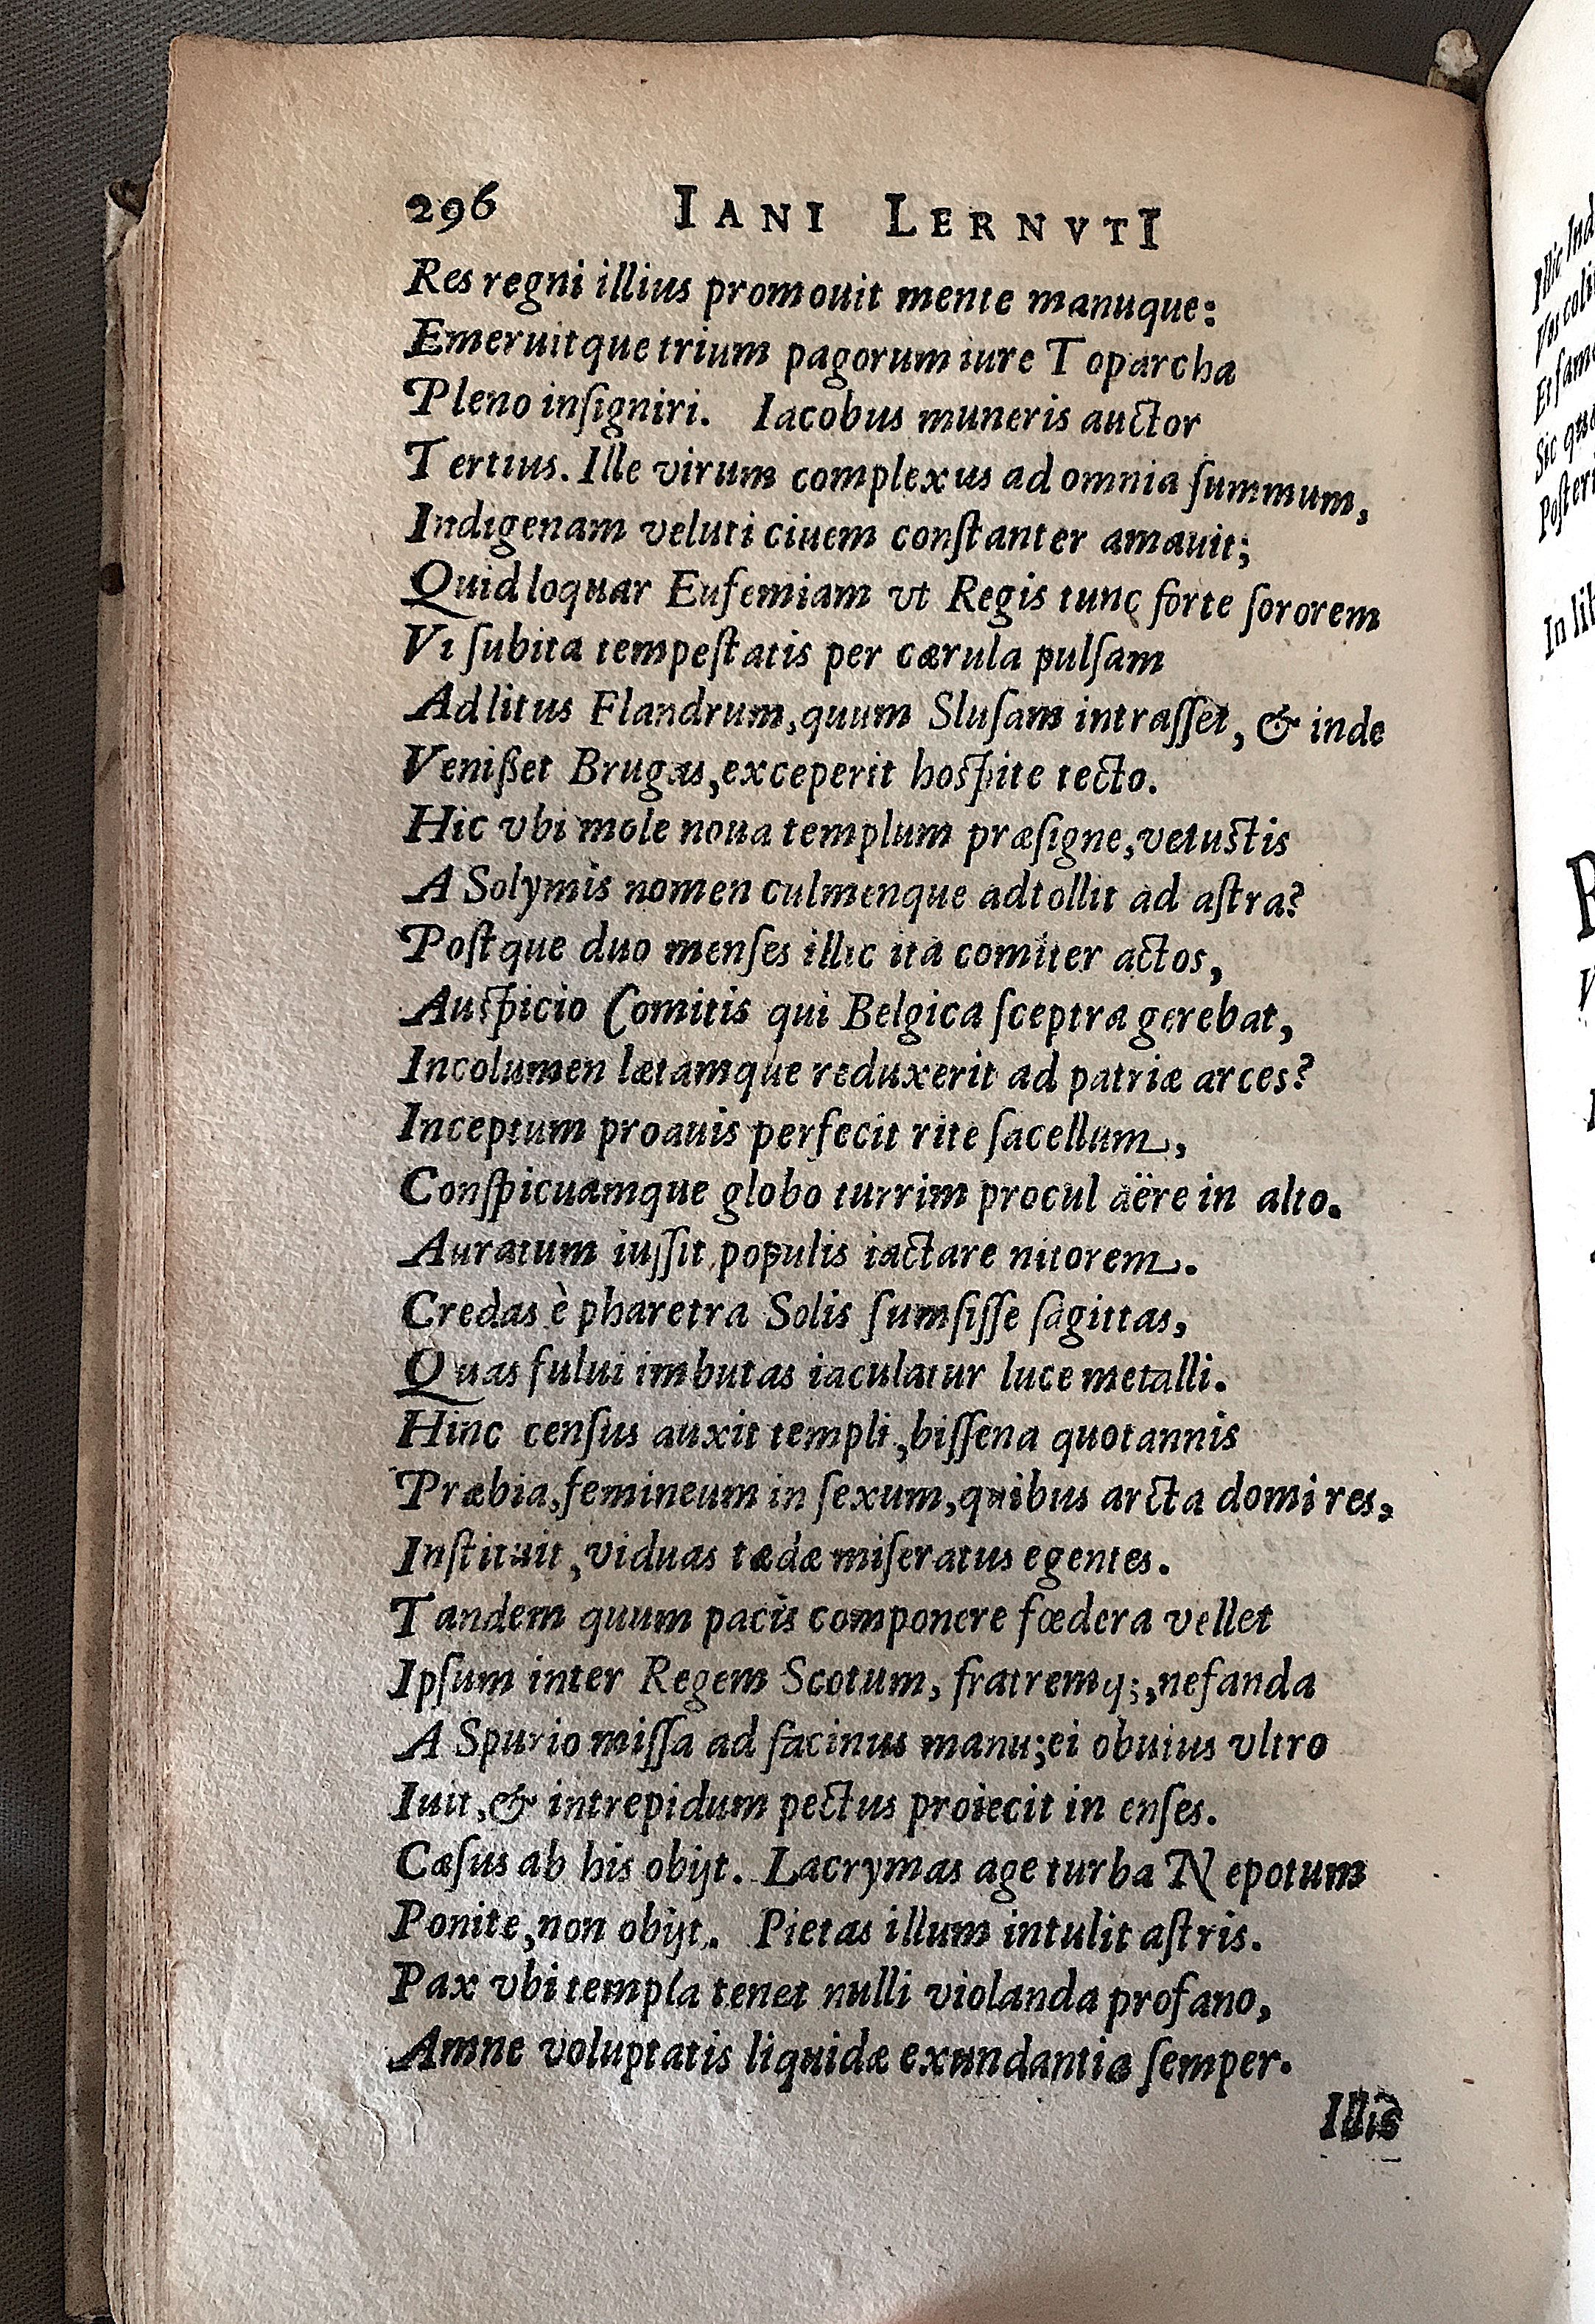 296 IANI LERNVTI
Res regni illius promouit mente manuque:
Emeruitque trium pagorum iure Toparcha
Pleno inſigniri. Iacobus muneris auctor
Tertius. Ille virum complexus ad omnia ſummum,
Indigenam veluti ciuem conſtanter amauit;
Quid loquar Eufemiam vt Regis tunc forte ſororem
Vi ſubita tempeſtatis per cærula pulſam
Ad litus Flandrum, quum Sluſam intraſſet, & inde
Venißet Brugas, exceperit hoſpite tecto.
Hic vbi mole noua templum præſigne, vetuſtis
A Solymis nomen culmenque adtollit ad aſtra?
Poſtque duo menſes illic ita comiter actos,
Auſpicio Comitis qui Belgica ſceptra gerebat,
Incolumen lætamque reduxerit ad patriæ arces?
Inceptum proauis perfecit rite ſacellum,
Conſpicuamque globo turrim procul aëre in alto.
Auratum iuſſit populis iactare nitorem.
Credas è pharetra Solis ſumſiſſe ſagittas,
Quas fului imbutas iaculatur luce metalli.
Hinc cenſus auxit templi, biſſena quotannis
Præbia, femineum in ſexum, quibus arcta domi res,
Inſtituit, viduas tædæ miſeratus egentes.
Tandem quum pacis componere fœdera vellet
Ipſum inter Regem Scotum, fratremq;, nefanda
A Spurio miſſa ad facinus manu; ei obuius vltro
Iuit, & intrepidum pectus proiecit in enſes.
Cæſus ab his obijt. Lacrymas age turba Nepotum
Ponite, non obijt. Pietas illum intulit aſtris.
Pax vbi templa tenet nulli violanda profano,
Amne voluptatis liquidæ exundantia ſemper.
Illis
Illic
Et
Sic
Poſteri
In